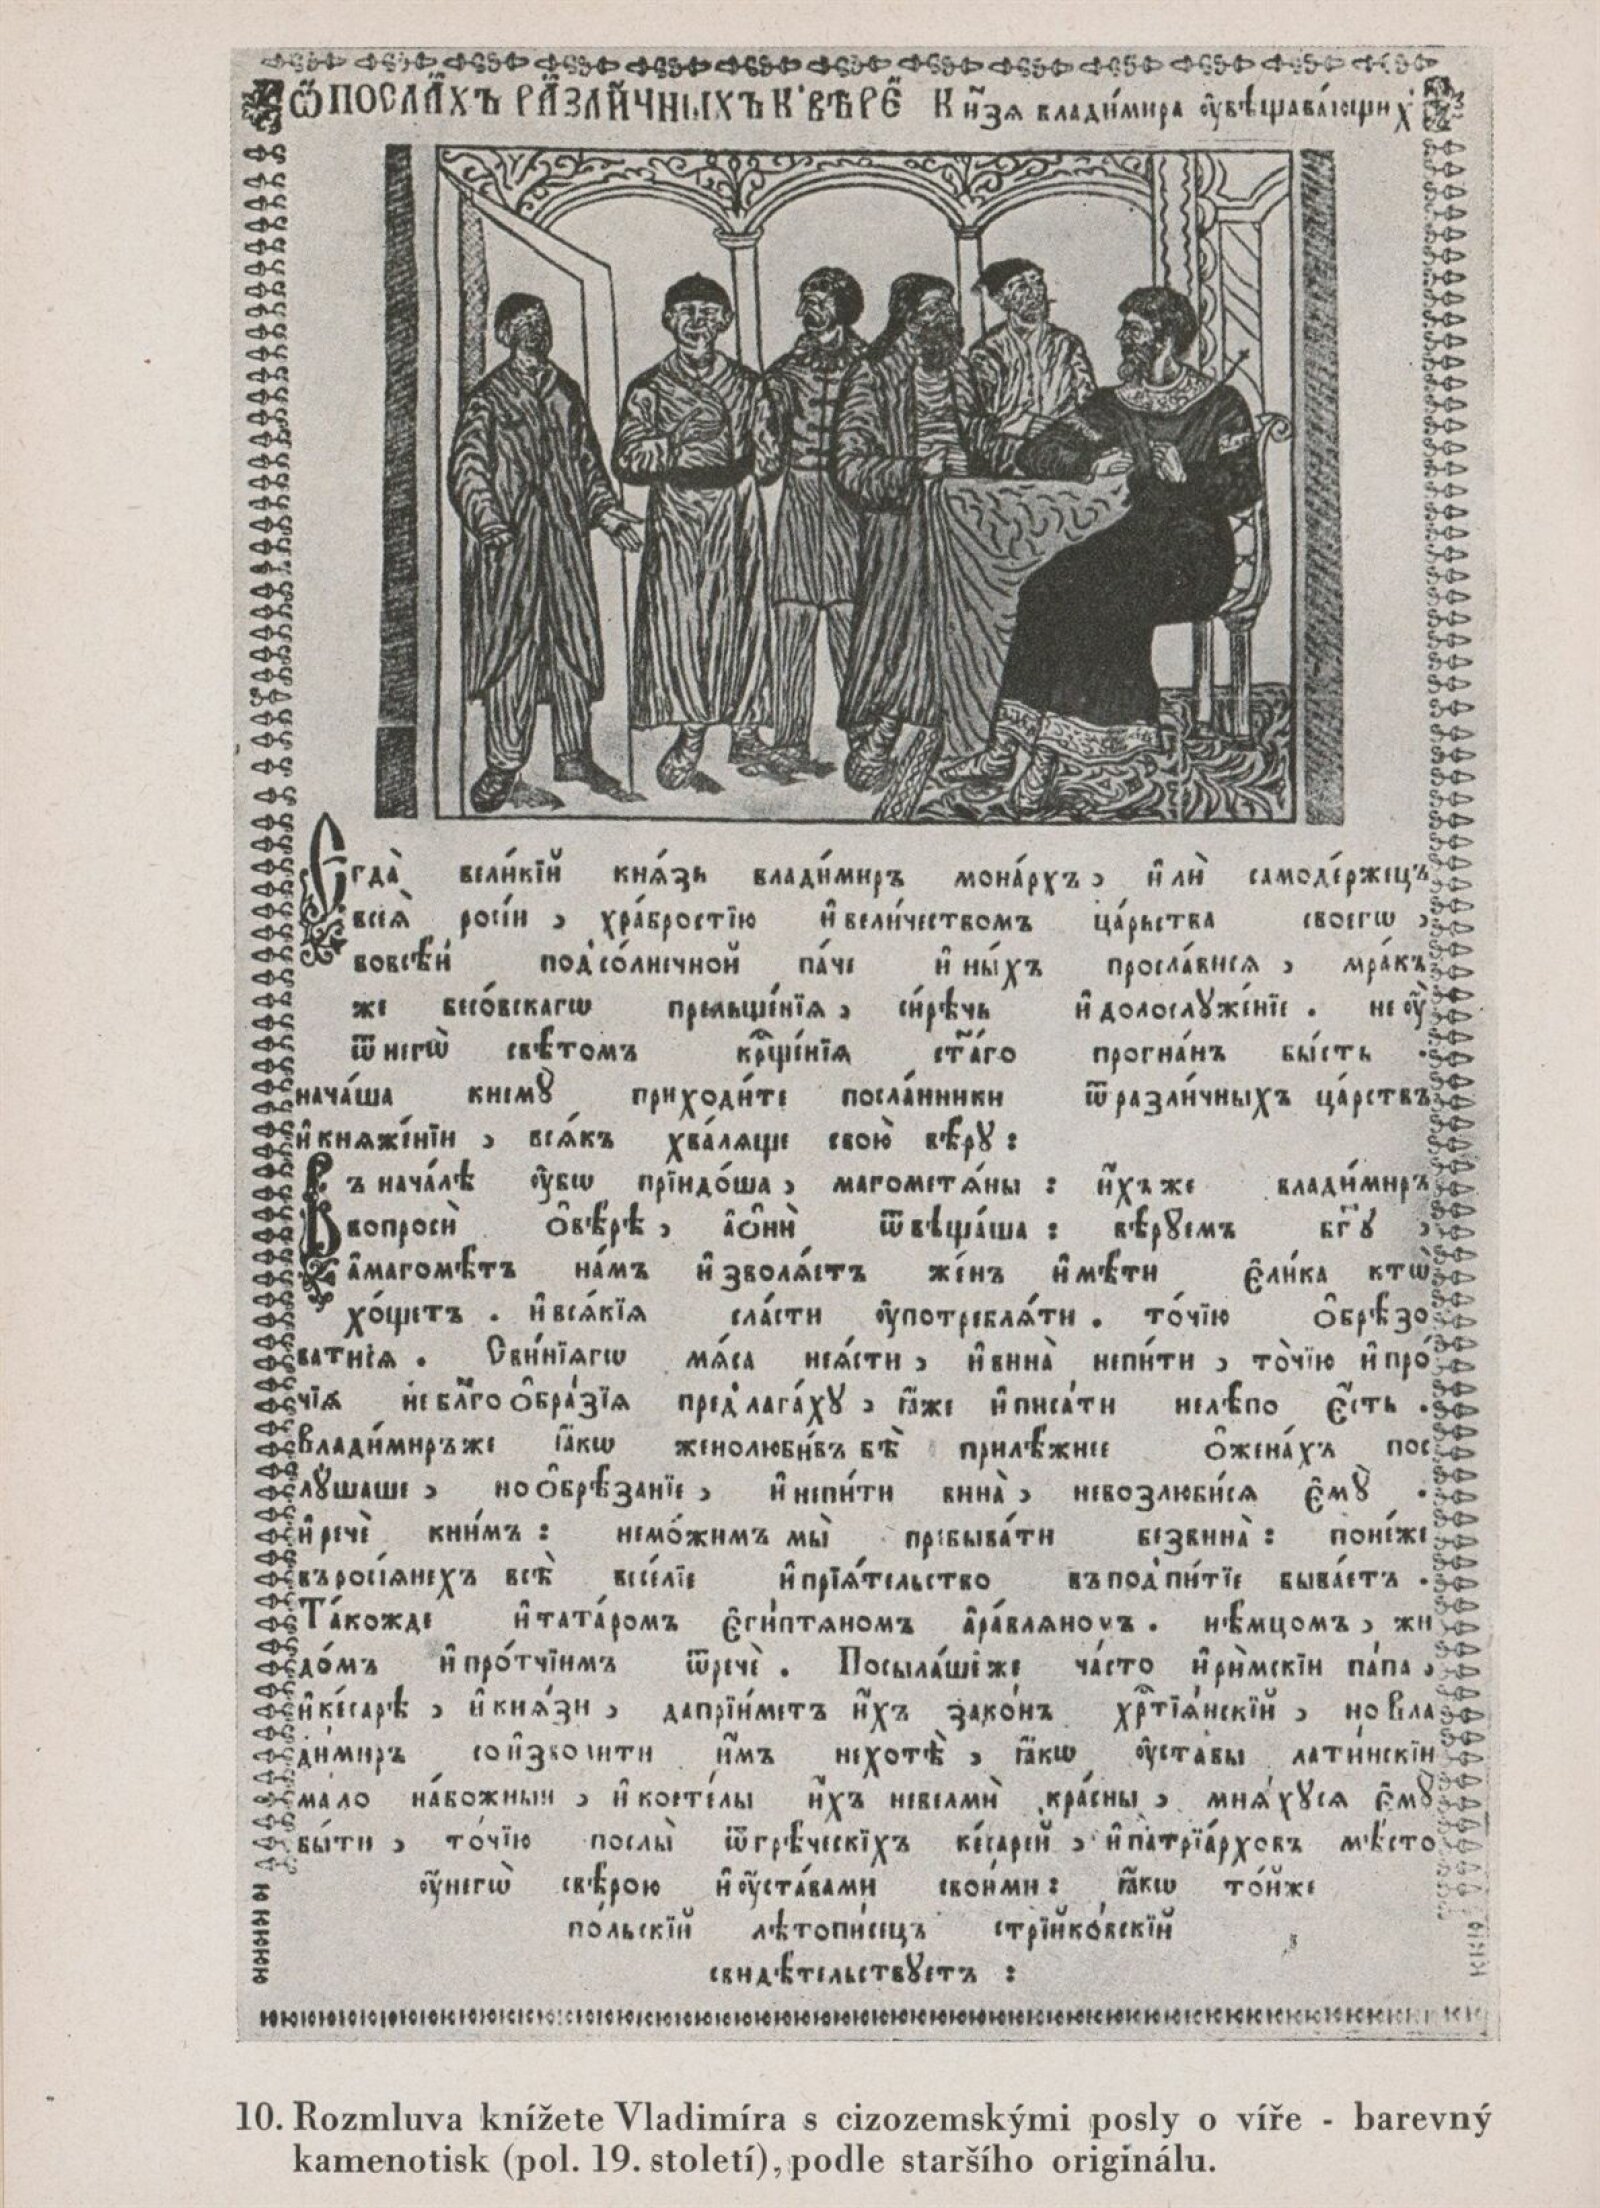 Ѿ ПОСЛА́ХЪ РАЗЛИ́ЧНЫХЪ К' ВѢРѢ Кн҃зѧ влади́мира ᲂу҆вѣщава́ющих
Єгда̀ вели́кїй кнѧ́зь влади́миръ мона́рхъ, и҆лѝ самоде́ржецъ
всеѧ̀ росі́и, хра́бростїю и҆вели́чествомъ ца́рьства своегѡ,
вовсе́й под̾со́лнечной па́че и҆ны́хъ просла́висѧ, мра́къ
же бесо́вскагѡ прельще́нїѧ, си́рѣчь и҆долослꙋже́нїе. не ᲂу҆
ѿнегѡ̀ свѣ́томъ кр҃ще́нїѧ ст҃а́го прогна́нъ бы́сть .
нача́ша кнемꙋ̀ приходи́те посла́нники ѿразли́чныхъ ца́рствъ
и҆кнѧже́нїи, всѧ́къ хва́лѧще свою̀ вѣ́рꙋ:
Въ нача́лѣ ᲂу҆бѡ прїидо́ша, магометѧ́ны: и҆́хъже влади́миръ
вопросѝ ѻ҆вѣ́рѣ, а҆ѻ҆нѝ ѿвѣща́ша: вѣ́рꙋемъ бг҃ꙋ,
а҆маго́мѣтъ на́мъ и҆зволѧ́етъ же́нъ и҆мѣ́ти є҆ли́ка ктѡ̀
хо́щетъ. и҆всѧ́кїѧ сла́сти ᲂу҆потреблѧ́ти. то́чїю ѻ҆брѣзо
ватисѧ. Сви́нїѧгѡ мѧ́са неꙗ́сти, и҆вина̀ непи́ти, то̀чїю и҆про́
чїѧ неб҃лгоѻ҆бра́зїѧ пред̾лага́хꙋ, ꙗ҆́же и҆писа́ти нелѣ́по є҆́сть.
Влади́миръже ꙗ҆́кѡ женолюби́въ бѣ̀ прилѣ́жнее ѻ҆жена́хъ пос
лꙋ́шаше, ноѻ҆брѣ́занїе, и҆непи́ти вина̀, невозлюби́сѧ є҆мꙋ̀ .
и҆речѐ кни́мъ: немо́жимъ мы̀ пребыва́ти безвина̀: поне́же
въросїѧнехъ всѐ весе́лїе и҆прїѧ́тельство въпод̾пи́тїе быва́етъ.
Та́кожде и҆тата́ромъ є҆ги́птѧномъ а҆ра́влѧномъ. нѣ́мцомъ, жи
до́мъ и҆про́тчїимъ ѿречѐ. Посыла́шеже ча́сто и҆ри́мскїи па́па,
и҆ке́сарѣ, и҆кнѧ́зи, даприи́метъ и҆́хъ зако́нъ хр҃тїѧ́нскїй, но Вла
ди́миръ соизволити и҆́мъ нехотѣ̀, ꙗ҆́кѡ ᲂу҆ста́вы лати́нскїи
мало на́божныи, и҆косте́лы и҆́хъ невелми̑ кра́сны, мнѧ́хꙋсѧ є҆мꙋ̀
бы́ти, то́чїю послы̀ ѿгрѣ́ческихъ ке́сарей, и҆патрїа́рховъ мѣ́сто
ᲂу҆негѡ̀ свѣ́рою и҆ᲂу҆ста́вами свои́ми: ꙗ҆́кѡ то́йже
по́льскїй лѣтопи́сецъ стрїйко́вскїй
свидѣ́тельствꙋетъ:
10. Rozmluva knížete Vladimíra s cizozemskými posly o víře - barevný
kamenotisk (pol. 19. století), podle staršího originálu.